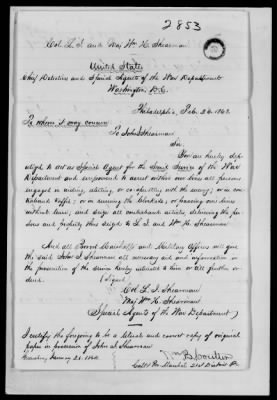 2853
Col. L. I. and Maj Wm H. Shearman
United States
Chief Detective and Special Agents of the War Department
Washington D.C.
Philadelphia, Feb. 26. 1863.
To whom it may concern
To John Shearman
Sir
You are hereby dep
utized to act as Special Agent for the Secret Service of the War
Department and empowered to arrest within our lines all persons
engaged in aiding, abetting, or cooperating with the enemy; or in con
traband traffic; or in running the blockade; or passing our lines
without leave; and seize all contraband articles, delivering the per
sons and property thus seized to L. I. and Wm H. Shearman.
And all Provost Marshalls and Military Officers will give
the said John S. Shearman all necessary aid and information in
the prosecution of the service hereby entrusted to him or till further or
dered.
(Signed)
Col L. I. Shearman
Maj Wm H. Shearman
(Special Agents of the War Department)
I certify the foregoing to be a literal and correct copy of original
paper in possession of John S. Shearman
January 21. 1864.
Capt & Pro Marshal 21st District Pa.